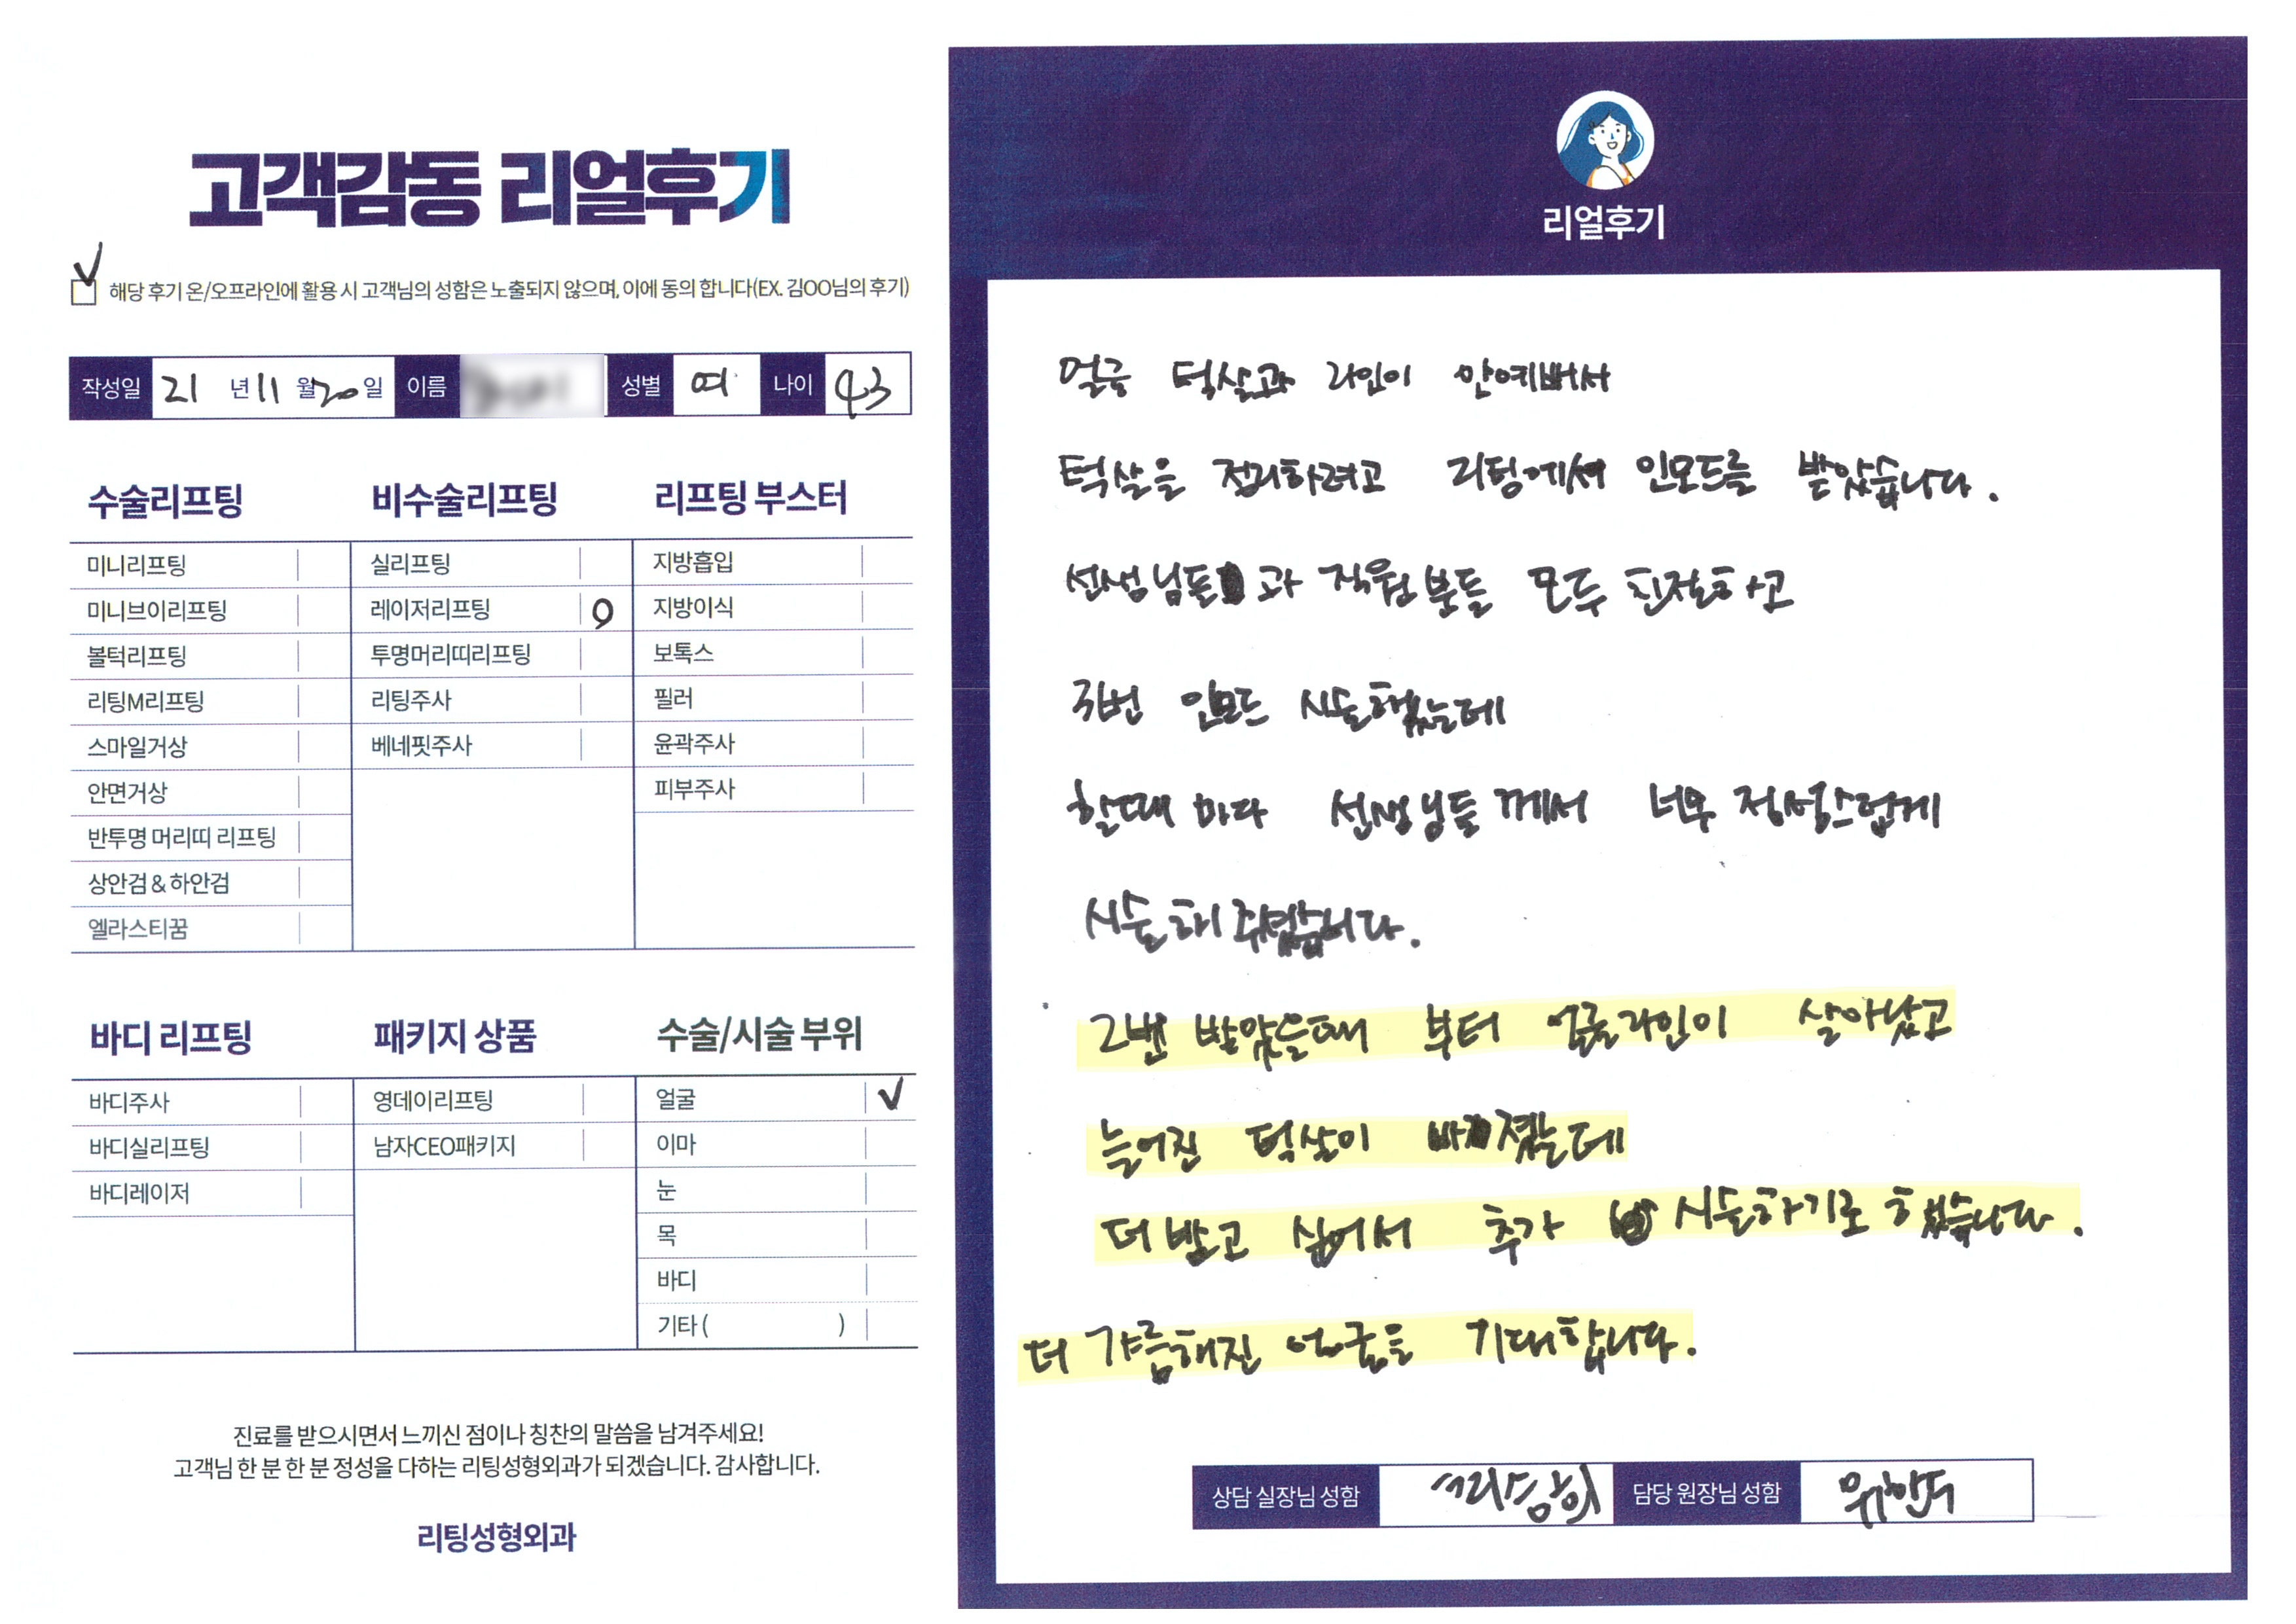 고객감동 리얼후기
해당 후기 온/오프라인에 활용 시 고객님의 성함은 노출되지 않으며, 이에 동의 합니다(EX. 김OO님의 후기)
작성일 21 년 11 월 20 일 이름 성별 여 나이 43
수술리프팅
미니리프팅
미니브이리프팅
볼턱리프팅
리팅M리프팅
스마일거상
안면거상
반투명 머리띠 리프팅
상안검 & 하안검
엘라스티꿈
비수술리프팅
실리프팅
레이저리프팅 O
투명머리띠리프팅
리팅주사
베네핏주사
리프팅 부스터
지방흡입
지방이식
보톡스
필러
윤곽주사
피부주사
바디 리프팅
바디주사
바디실리프팅
바디레이저
패키지 상품
영데이리프팅
남자CEO패키지
수술/시술 부위
얼굴 ✓
이마
눈
목
바디
기타 ( )
진료를 받으시면서 느끼신 점이나 칭찬의 말씀을 남겨주세요!
고객님 한 분 한 분 정성을 다하는 리팅성형외과가 되겠습니다. 감사합니다.
리팅성형외과
리얼후기
얼굴 턱살과 라인이 안예뻐서
턱살을 정리하려고 리팅에서 인모드를 받았습니다.
선생님들과 직원분들 모두 친절하고
3번 인모드 시술했었는데
할때 마다 선생님들께서 너무 정성스럽게
시술해 주셨습니다.
2번 받았을때 부터 얼굴라인이 살아났고
늘어진 턱살이 빠졌는데
더 받고 싶어서 추가 시술하기로 했습니다.
더 갸름해진 얼굴을 기대합니다.
상담 실장님 성함 담당 원장님 성함